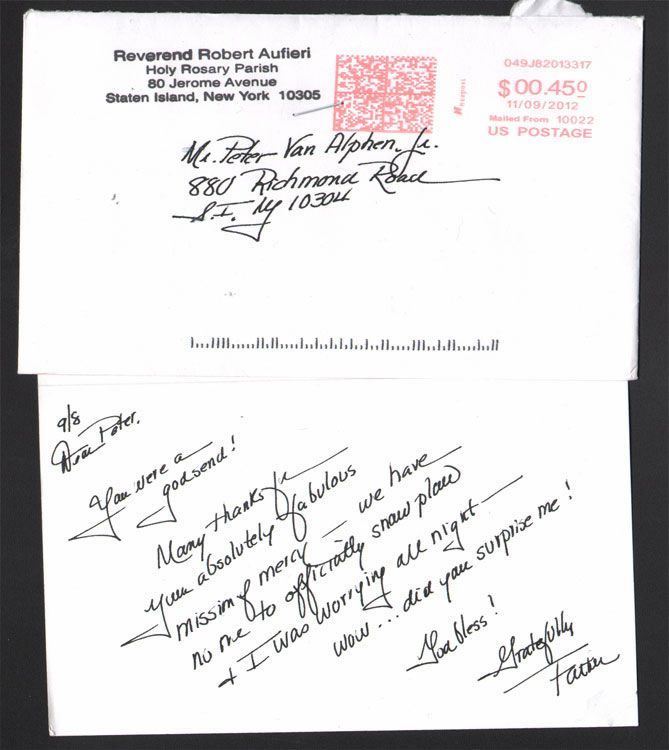 Reverend Robert Aufieri
Holy Rosary Parish
80 Jerome Avenue
Staten Island, New York 10305
049J82013317
$00.450
11/09/2012
Mailed From 10022
US POSTAGE
Mr. Peter Van Alphen, Jr.
880 Richmond Road
S.I. NY 10304
9/8
Dear Peter,
You were a
godsend!
Many thanks for
your absolutely fabulous
mission of mercy — we have
no one to officially snow plow
+ I was worrying all night —
wow... did you surprise me!
God bless!
Gratefully
Father